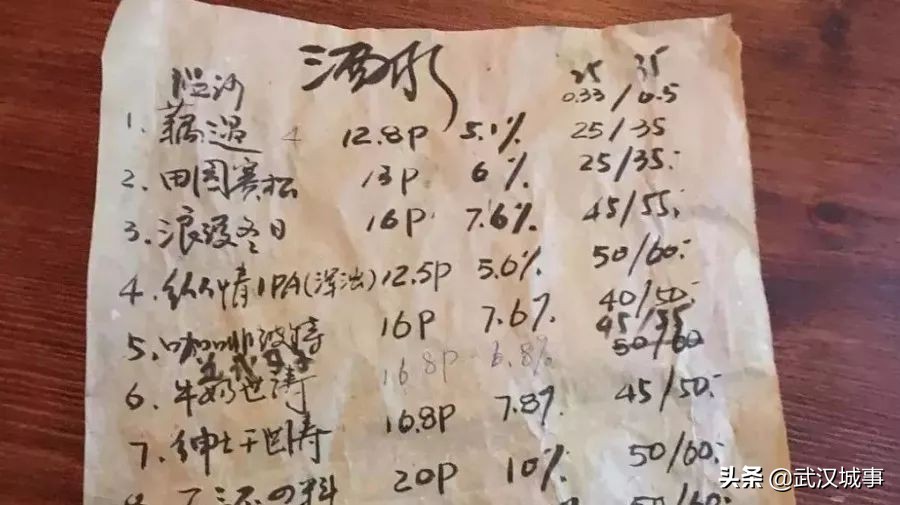 酒水
35 35
0.33/0.5
1. 藕遇 12.8P 5.1% 25/35
2. 田园赛松 13P 6% 25/35
3. 浪漫冬日 16P 7.6% 45/55
4. 纵情IPA(浑浊) 12.5P 5.6% 50/60
5. 咖啡波特 16P 7.6% 40/50
45/55
6. 牛奶世涛 16.8P 6.8% 50/60
7. 绅士干世涛 16.8P 7.8% 45/50
20P 10% 50/60
50/60
头条 @武汉城事